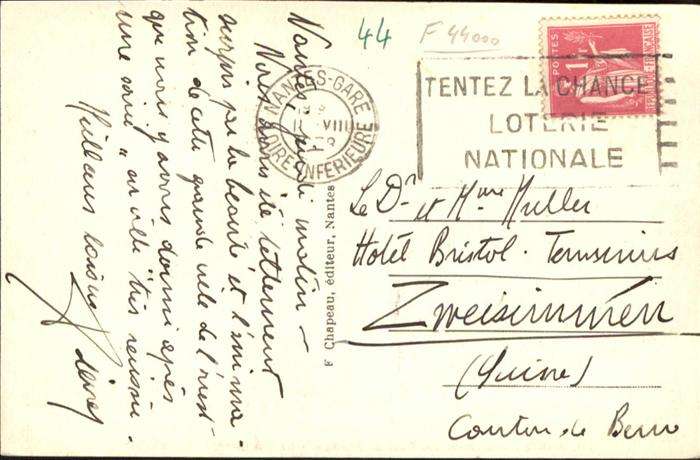 Nantes jeudi matin –
Nous avons été tellement
surpris par la beauté et l'anima-
tion de cette grande ville de l'ouest
que nous y avons dormi après
une soirée "en ville" très
Meilleurs baisers
44
F 44000
POSTES
1F
RÉPUBLIQUE FRANÇAISE
NANTES-GARE
VIII
LOIRE INFERIEURE
TENTEZ LA CHANCE
LOTERIE
NATIONALE
F Chapeau, éditeur, Nantes
Le Dr et Mme Muller
Hotel Bristol - Terminus
Zweisimmen
(Suisse)
Canton de Berne